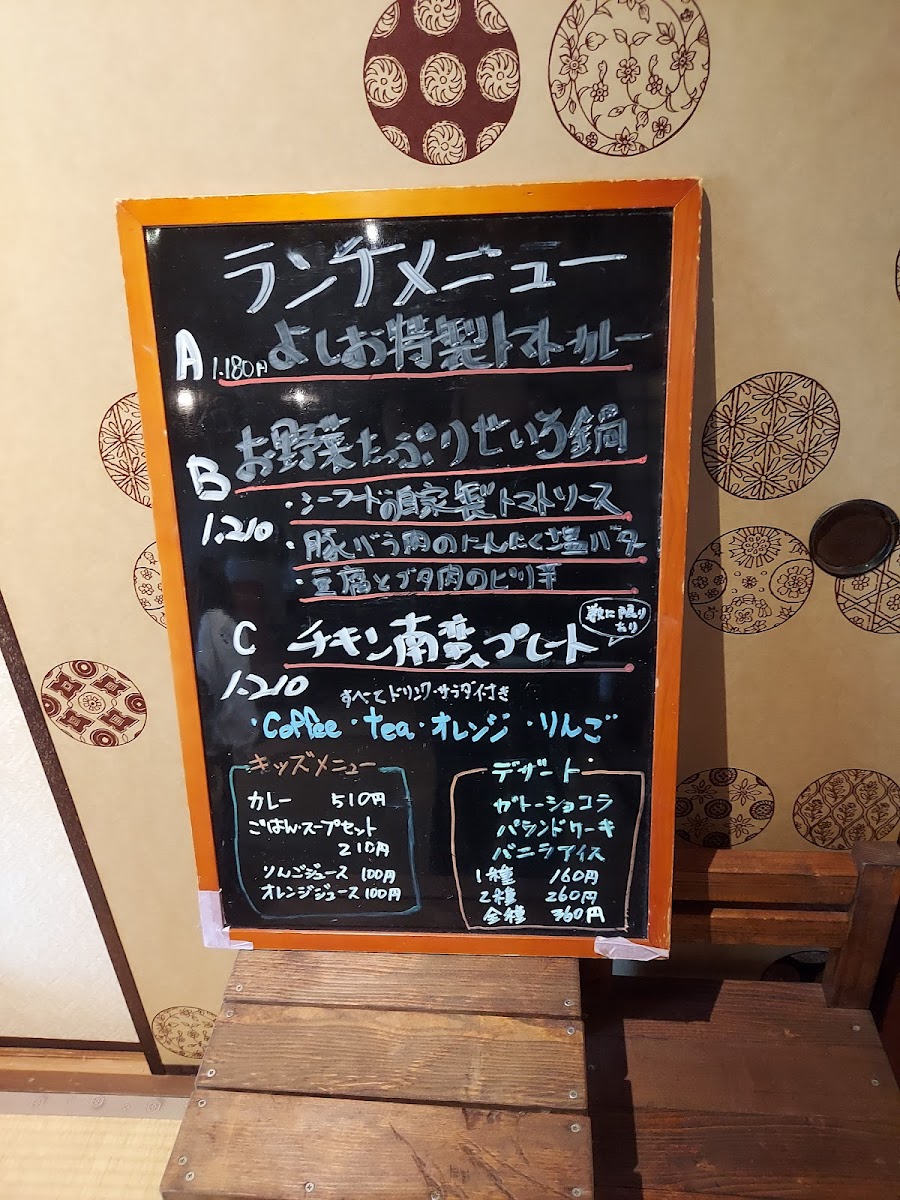 ランチメニュー
A 1.180円 よしお特製トマトカレー
B お野菜たっぷりせいろ鍋
1.210
・シーフードの自家製トマトソース
・豚バラ肉のにんにく塩バター
・豆腐とブタ肉のピリ辛
C チキン南蛮プレート
数に限りあり
1.210
すべてドリンク・サラダ付き
・Coffee・tea・オレンジ・りんご
キッズメニュー
カレー 510円
ごはん・スープセット
210円
りんごジュース 100円
オレンジジュース 100円
デザート
ガトーショコラ
パウンドケーキ
バニラアイス
1種 160円
2種 260円
全種 360円